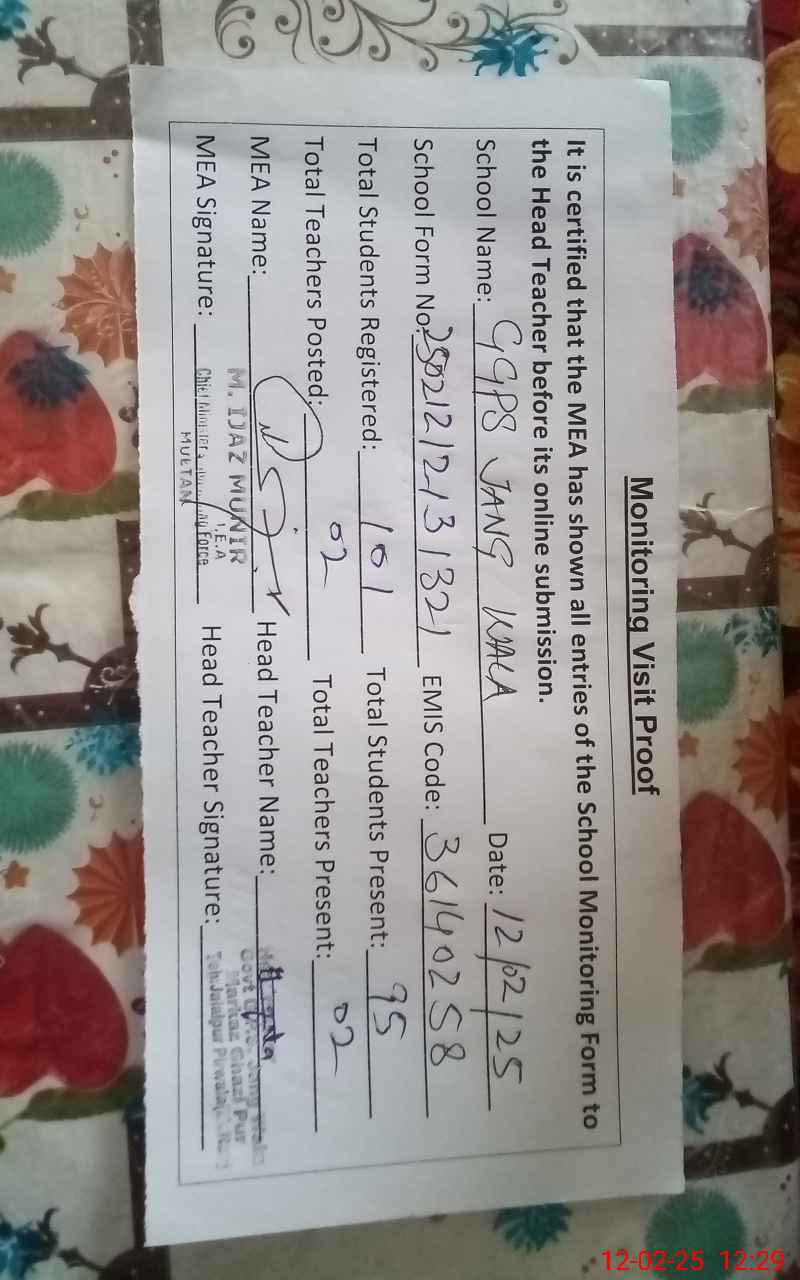 Monitoring Visit Proof
It is certified that the MEA has shown all entries of the School Monitoring Form to
the Head Teacher before its online submission.
School Name: GGPS JANG WALA Date: 12/02/25
School Form No: 25021212131321 EMIS Code: 36140258
Total Students Registered: 101 Total Students Present: 95
Total Teachers Posted: 02 Total Teachers Present: 02
MEA Name: Head Teacher Name:
M. IJAZ MUNIR
Govt Jang Wala
M.E.A
Markaz Ghazi Pur
MEA Signature: Head Teacher Signature:
Chief Minister's Monitoring Force
Teh. Jalalpur Pirwala
MULTAN
12-02-25 12:29